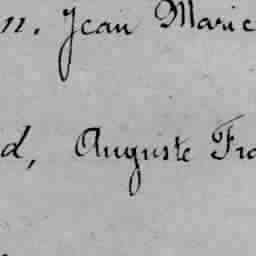 n. Jean Marie
d, Auguste Fra